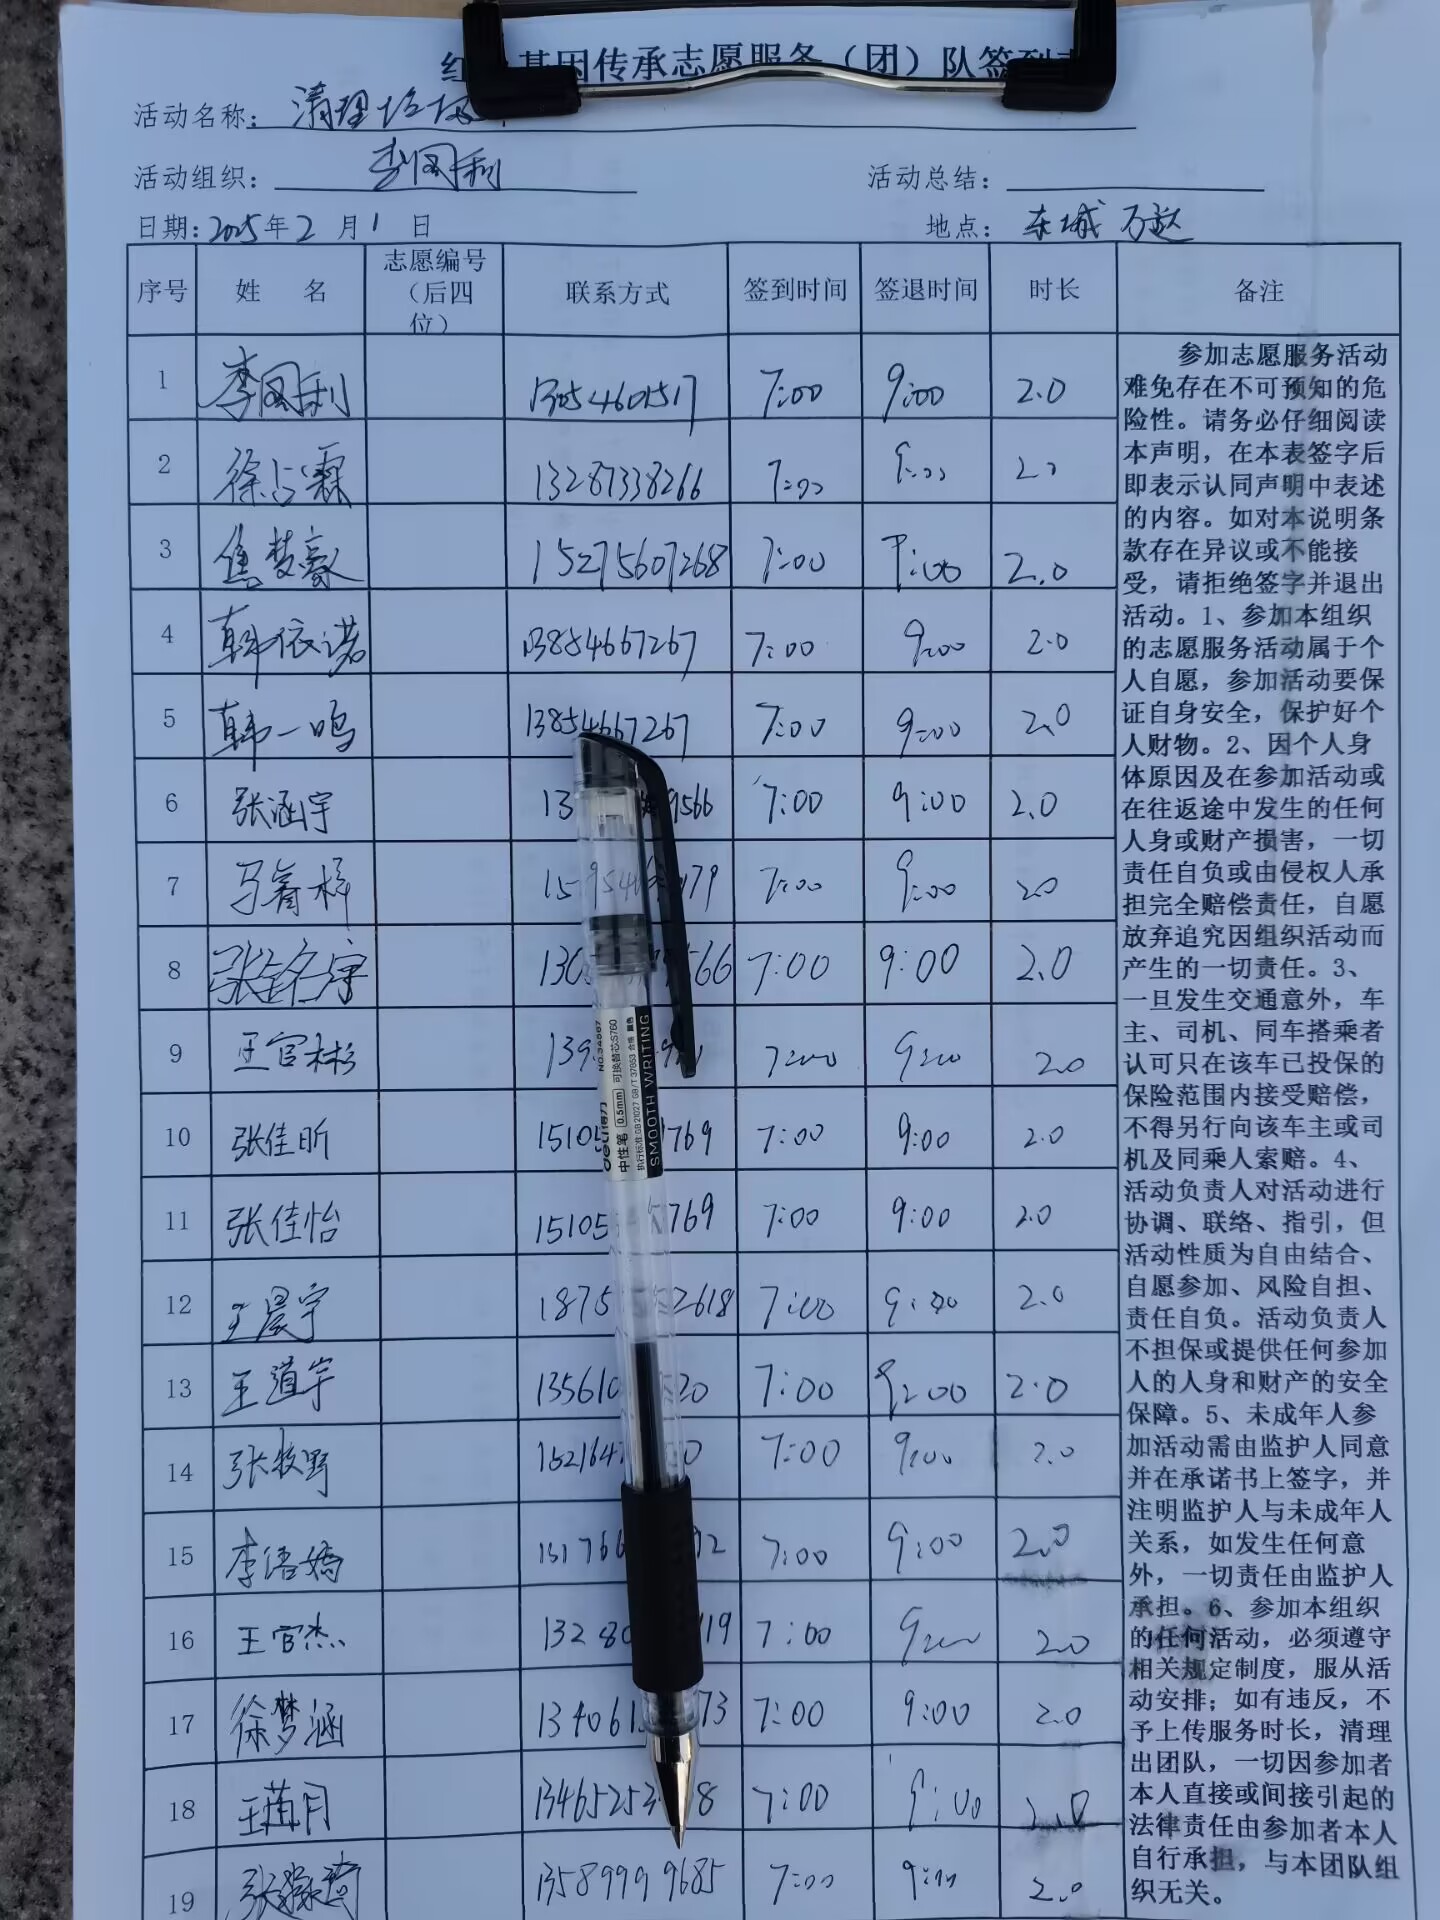 基因传承志愿服务（团）队签到表
活动名称：清理垃圾
活动组织：李国利 活动总结：
日期：2025年2月1日 地点：东城 万达
序号 姓 名 志愿编号（后四位） 联系方式 签到时间 签退时间 时长 备注
1 李国利 13054601517 7:00 9:00 2.0
2 徐占霖 13287338266 7:00 9:00 2.0
3 焦梦豪 15275607268 7:00 9:00 2.0
4 韩依诺 13854667267 7:00 9:00 2.0
5 韩一鸣 13854667267 7:00 9:00 2.0
6 张涵宇 7:00 9:00 2.0
7 马睿梓 7:00 9:00 2.0
8 张铭宇 7:00 9:00 2.0
9 王官彬 7:00 9:00 2.0
10 张佳昕 7:00 9:00 2.0
11 张佳怡 7:00 9:00 2.0
12 王晨宇 7:00 9:00 2.0
13 王道宇 7:00 9:00 2.0
14 张牧野 7:00 9:00 2.0
15 李语嫣 7:00 9:00 2.0
16 王官杰 7:00 9:00 2.0
17 徐梦涵 7:00 9:00 2.0
18 7:00 9:00 2.0
19 13589999685 7:00 9:00 2.0
参加志愿服务活动
难免存在不可预知的危
险性。请务必仔细阅读
本声明，在本表签字后
即表示认同声明中表述
的内容。如对本说明条
款存在异议或不能接
受，请拒绝签字并退出
活动。1、参加本组织
的志愿服务活动属于个
人自愿，参加活动要保
证自身安全，保护好个
人财物。2、因个人身
体原因及在参加活动或
在往返途中发生的任何
人身或财产损害，一切
责任自负或由侵权人承
担完全赔偿责任，自愿
放弃追究因组织活动而
产生的一切责任。3、
一旦发生交通意外，车
主、司机、同车搭乘者
认可只在该车已投保的
保险范围内接受赔偿，
不得另行向该车主或司
机及同乘人索赔。4、
活动负责人对活动进行
协调、联络、指引，但
活动性质为自由结合、
自愿参加、风险自担、
责任自负。活动负责人
不担保或提供任何参加
人的人身和财产的安全
保障。5、未成年人参
加活动需由监护人同意
并在承诺书上签字，并
注明监护人与未成年人
关系，如发生任何意
外，一切责任由监护人
承担。6、参加本组织
的任何活动，必须遵守
相关规定制度，服从活
动安排；如有违反，不
予上传服务时长，清理
出团队，一切因参加者
本人直接或间接引起的
法律责任由参加者本人
自行承担，与本团队组
织无关。
NO.34567 可换替芯S760
deli得力 中性笔 0.5mm
执行标准:GB21027 GB/T 37853 合格 黑色
SMOOTH WRITING